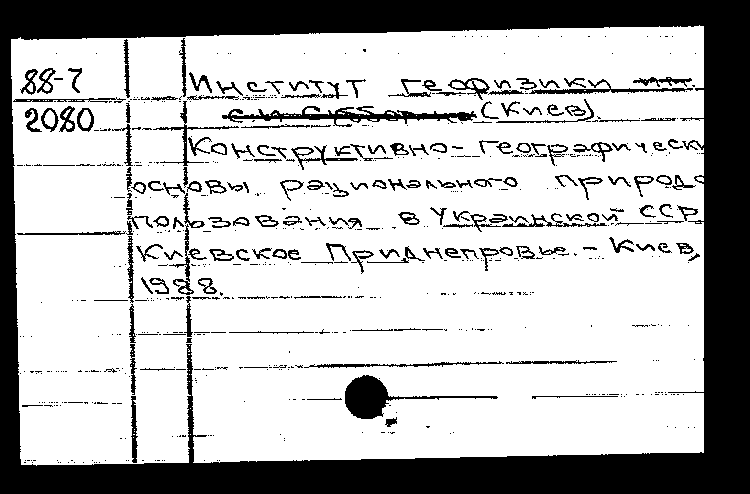 88-7 Институт геофизики им.
2080 С.И. Субботина (Киев).
Конструктивно-географически
основы рационального природо
пользования в Украинской ССР
Киевское Приднепровье. - Киев,
1988.